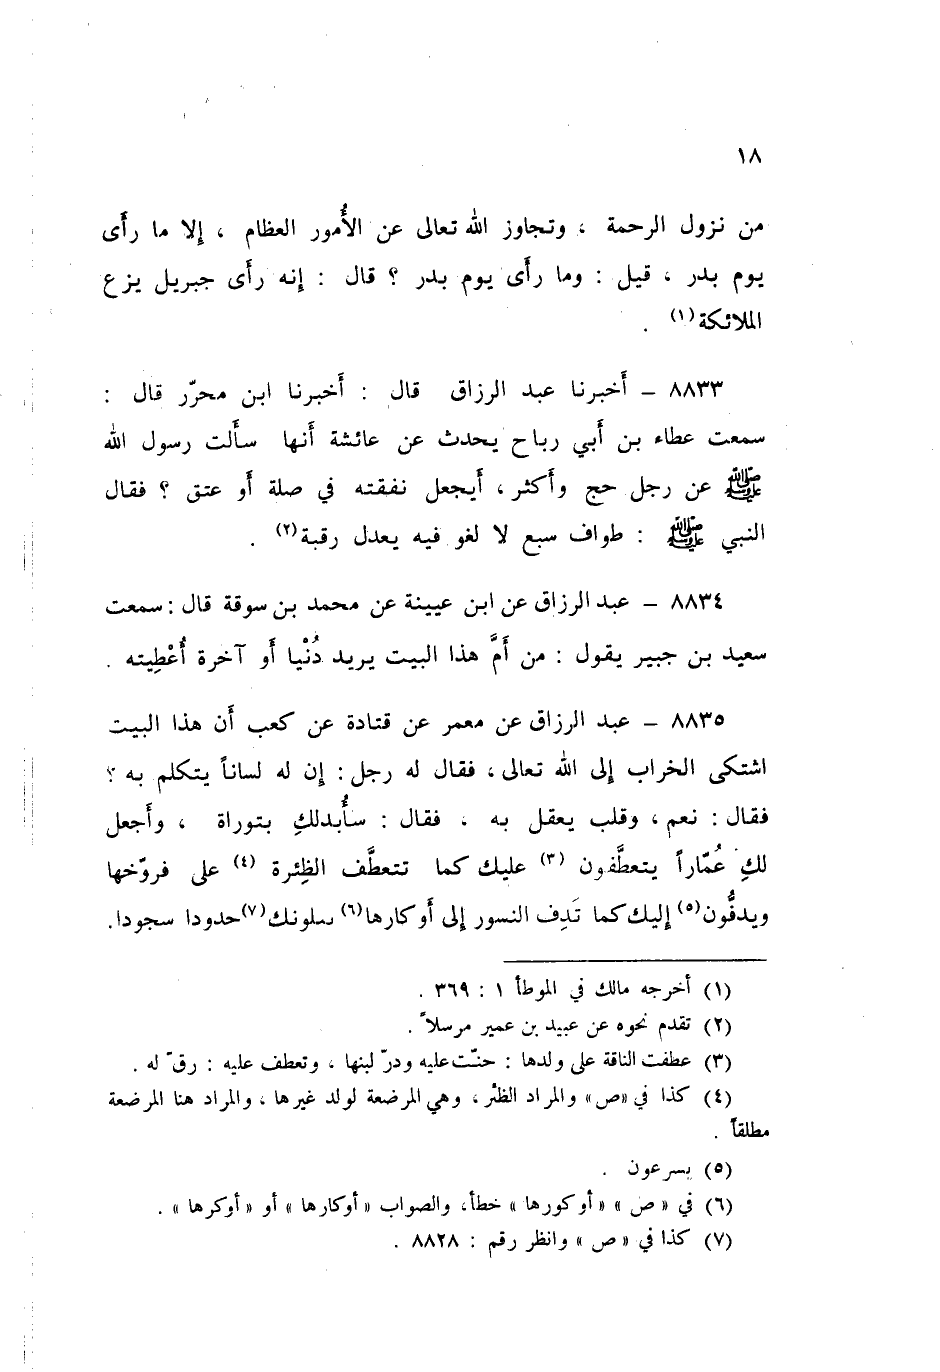 ١٨
من نزول الرحمة ، وتجاوز الله تعالى عن الأُمور العظام ، إلا ما رأَى
يوم بدر ، قيل : وما رأَى يوم بدر ؟ قال : إنه رأَى جبريل يزع
الملائكة(١) .
٨٨٣٣ – أَخبرنا عبد الرزاق قال : أَخبرنا ابن محرّر قال :
سمعت عطاء بن أَبي رباح يحدث عن عائشة أَنها سأَلت رسول الله
ﷺ عن رجل حج وأَكثر ، أَيجعل نفقته في صلة أَو عتق ؟ فقال
النبي ﷺ : طواف سبع لا لغو فيه يعدل رقبة(٢) .
٨٨٣٤ – عبد الرزاق عن ابن عيينة عن محمد بن سوقة قال : سمعت
سعيد بن جبير يقول : من أَمَّ هذا البيت يريد دُنْيا أَو آخرة أُعْطِيته .
٨٨٣٥ – عبد الرزاق عن معمر عن قتادة عن كعب أَن هذا البيت
اشتكى الخراب إلى الله تعالى ، فقال له رجل : إن له لساناً يتكلم به ؟
فقال : نعم ، وقلب يعقل به ، فقال : سأُبدلكِ بتوراة ، وأَجعل
لكِ عُمّاراً يتعطَّفون (٣) عليك كما تتعطَّف الظِئرة (٤) على فروّخها
ويدفُّون(٥) إليك كما تَدِف النسور إلى أَوكارها(٦) سلونك(٧) حدودا سجودا.
(١) أخرجه مالك في الموطأ ١ : ٣٦٩ .
(٢) تقدم نحوه عن عبيد بن عمير مرسلاً .
(٣) عطفت الناقة على ولدها : حنّت عليه ودرّ لبنها ، وتعطف عليه : رقّ له .
(٤) كذا في «ص» والمراد الظئر ، وهي المرضعة لولد غيرها ، والمراد هنا المرضعة
مطلقاً .
(٥) يسرعون .
(٦) في « ص » «أوكورها» خطأ، والصواب «أوكارها» أو «أوكرها» .
(٧) كذا في « ص » وانظر رقم : ٨٨٢٨ .